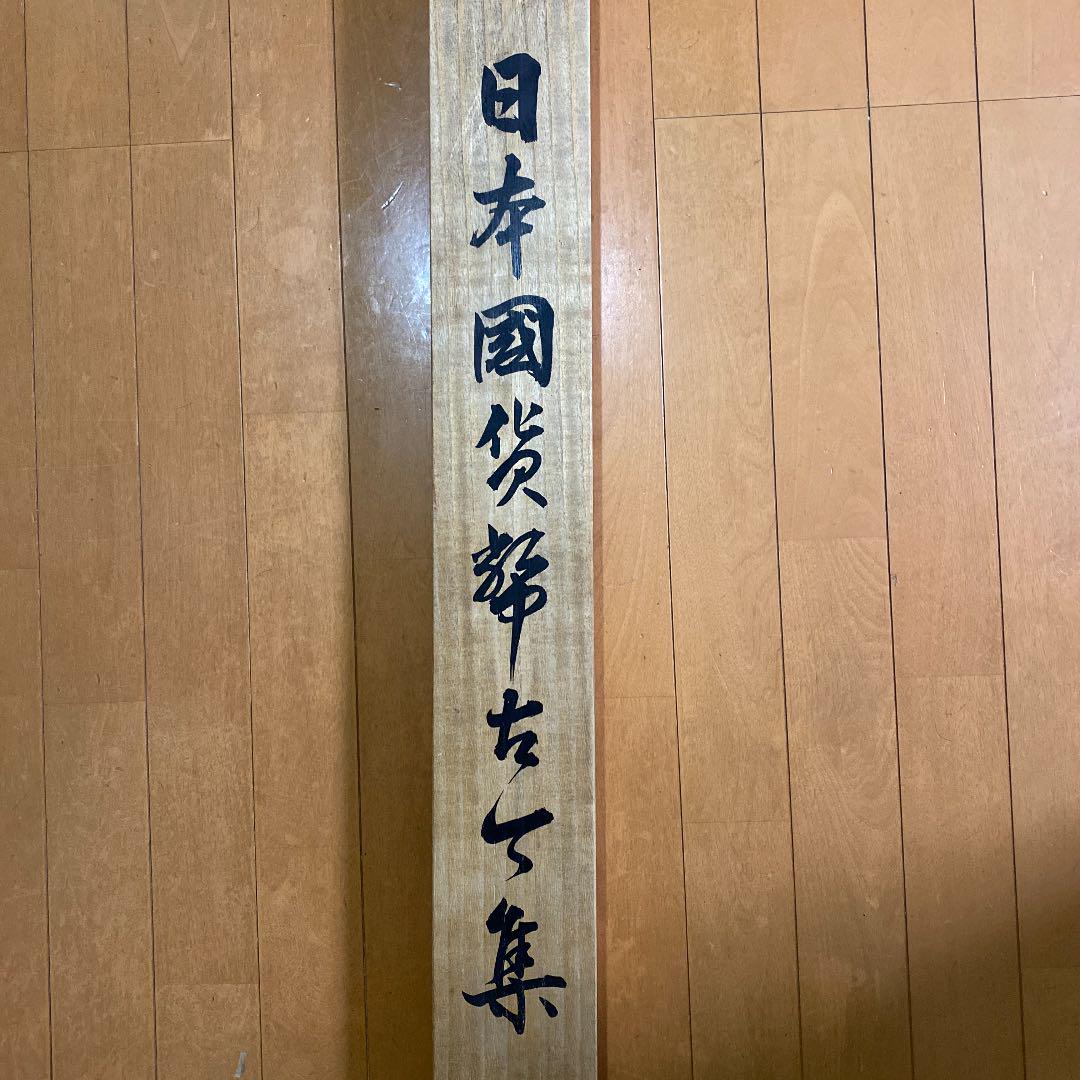 日本國貨幣古今集